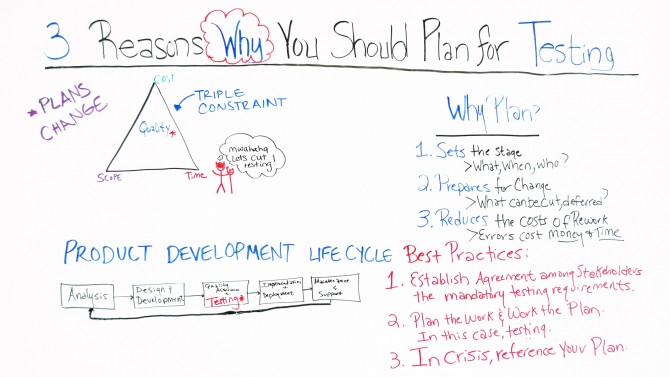 3 Reasons Why You Should Plan for Testing
* PLANS
CHANGE
COST
TRIPLE
CONSTRAINT
Quality*
SCOPE
Time
mwahaha
Lets cut
testing!
"Why" Plan?
1. Sets the Stage
>What, When, Who?
2. Prepares for Change
>What can be cut, deferred?
3. Reduces the costs of Rework
>Errors cost money & Time
PRODUCT DEVELOPMENT LIFE CYCLE
Analysis
Design +
Development
Quality
Assurance
Testing*
Implementation
+
Deployment
Maintenance
&
Support
Best Practices:
1. Establish Agreement among Stakeholders
the mandatory testing requirements.
2. Plan the Work & Work the Plan.
In this case, testing.
3. In Crisis, reference Your Plan.